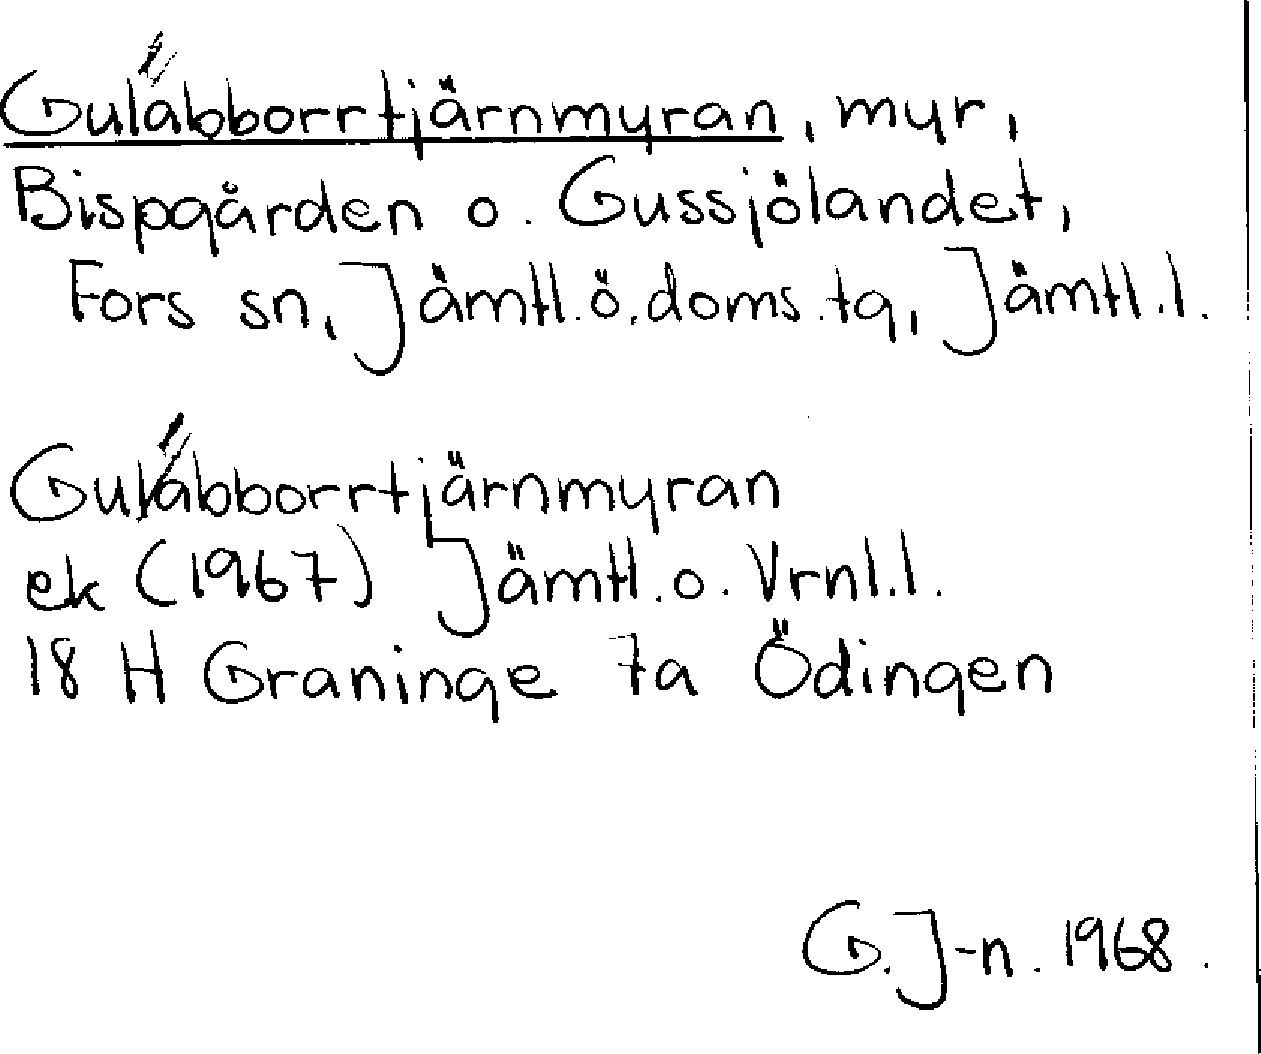 Gulabborrtjärnmyran, myr,
Bispgården o. Gussjölandet,
Fors sn, Jämtl.ö.doms.tg, Jämtl.l.
Gulabborrtjärnmyran
ek (1967) Jämtl.o. Vrnl.l.
18 H Graninge 7a Ödingen
G.J-n. 1968.